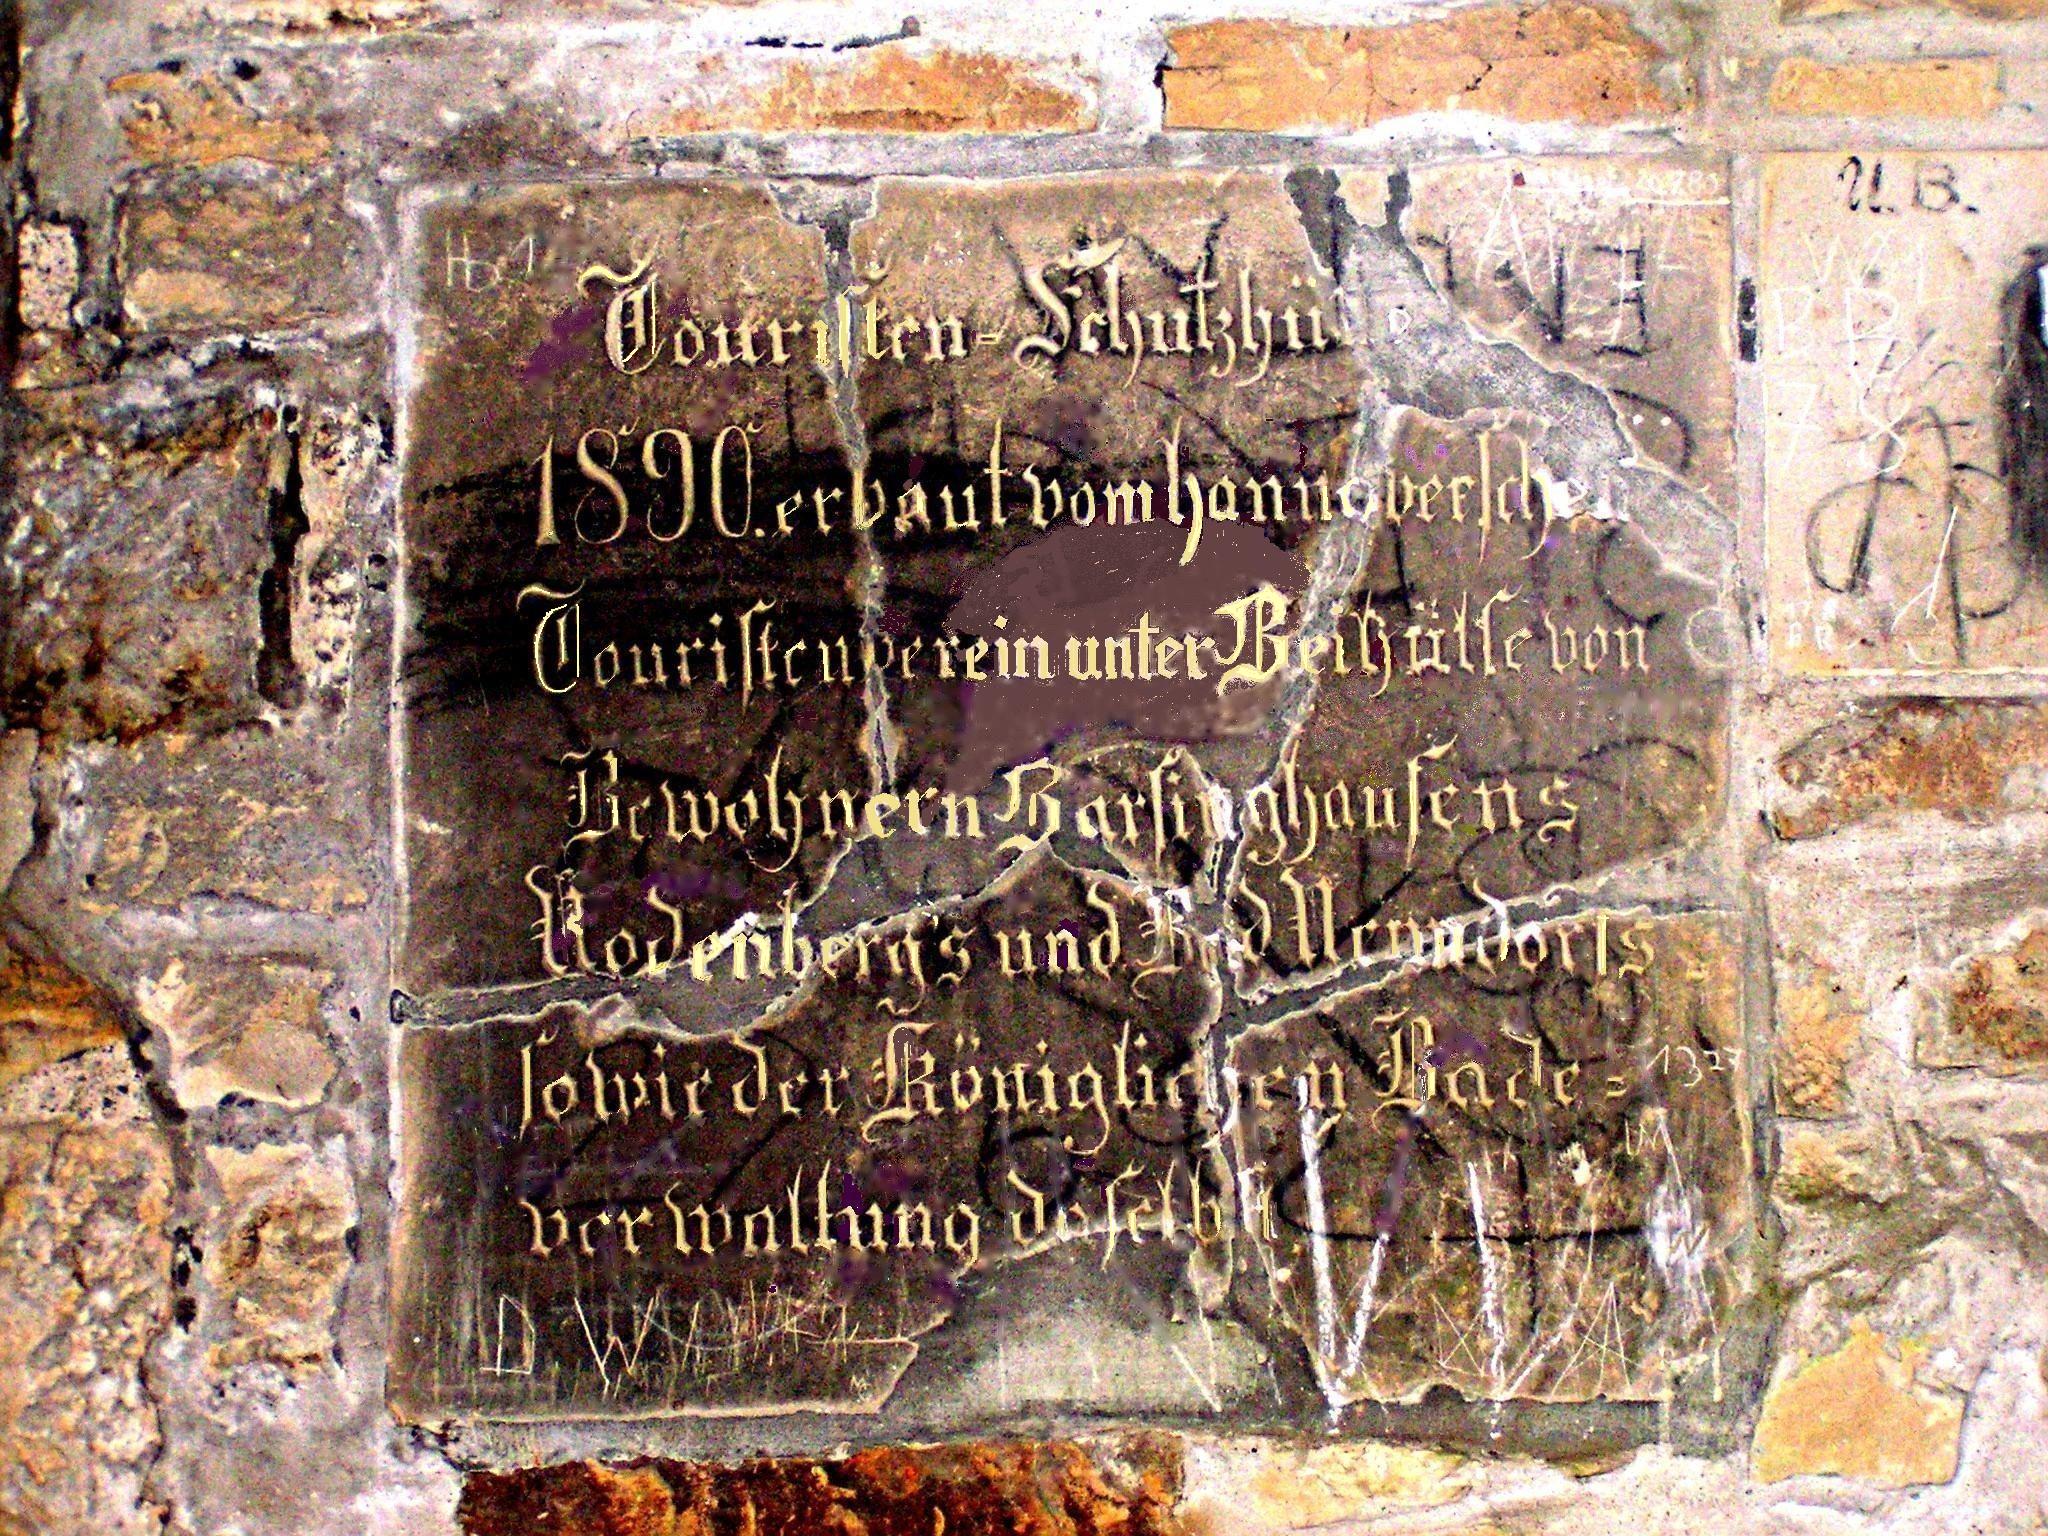 Touristen-Schutzhüt
1890. erbaut vom hannoverschen
Touristenverein unter Beihülfe von
Bewohnern Barsinghausens
Rodenberg's und Bad Nenndorfs
sowie der Königlichen Bade=
verwaltung daselbst.
U.B.
D W